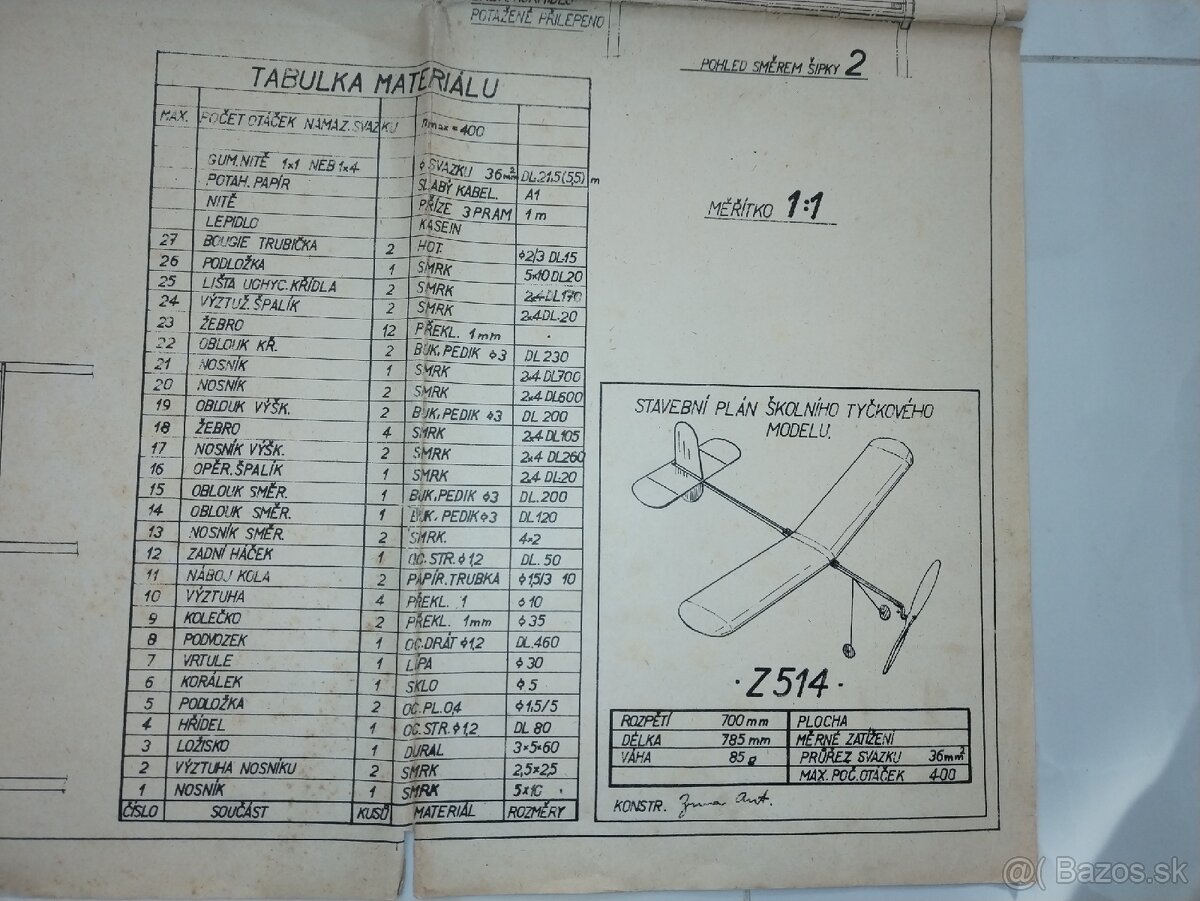 POTAŽENÉ PŘILEPENO
POHLED SMĚREM ŠIPKY 2
TABULKA MATERIÁLU
MAX. POČET OTÁČEK NAMAZ. SVAZKU nmax = 400
GUM. NITĚ 1x1 NEB 1x4 ϕ SVAZKU 36mm² DL.21,5(5,5)m
POTAH. PAPÍR SLABÝ KABEL. A1
NITĚ PŘÍZE 3 PRAM 1m
LEPIDLO KASEIN
27 BOUGIE TRUBIČKA 2 HOT. ϕ2/3 DL15
26 PODLOŽKA 1 SMRK 5x10 DL20
25 LIŠTA UCHYC. KŘÍDLA 2 SMRK 2x4 DL170
24 VÝZTUŽ. ŠPALÍK 2 SMRK 2x4 DL.20
23 ŽEBRO 12 PŘEKL. 1mm
22 OBLOUK KŘ. 2 BUK, PEDIK ϕ3 DL 230
21 NOSNÍK 1 SMRK 2x4 DL700
20 NOSNÍK 2 SMRK 2x4 DL600
19 OBLOUK VÝŠK. 2 BUK, PEDIK ϕ3 DL 200
18 ŽEBRO 4 SMRK 2x4 DL105
17 NOSNÍK VÝŠK. 2 SMRK 2x4 DL260
16 OPĚR. ŠPALÍK 1 SMRK 2x4 DL20
15 OBLOUK SMĚR. 1 BUK, PEDIK ϕ3 DL. 200
14 OBLOUK SMĚR. 1 BUK, PEDIK ϕ3 DL 120
13 NOSNÍK SMĚR. 2 SMRK. 4x2
12 ZADNÍ HÁČEK 1 OC. STR. ϕ1,2 DL. 50
11 NÁBOJ KOLA 2 PAPÍR. TRUBKA ϕ1,5/3 10
10 VÝZTUHA 4 PŘEKL. 1 ϕ10
9 KOLEČKO 2 PŘEKL. 1mm ϕ35
8 PODVOZEK 1 OC. DRÁT ϕ1,2 DL.460
7 VRTULE 1 LÍPA ϕ30
6 KORÁLEK 1 SKLO ϕ5
5 PODLOŽKA 2 OC. PL. 0,4 ϕ1,5/5
4 HŘÍDEL 1 OC. STR. ϕ1,2 DL 80
3 LOŽISKO 1 DURAL 3x5x60
2 VÝZTUHA NOSNÍKU 2 SMRK 2,5x2,5
1 NOSNÍK 1 SMRK 5x10
ČÍSLO SOUČÁST KUSŮ MATERIÁL ROZMĚRY
MĚŘÍTKO 1:1
STAVEBNÍ PLÁN ŠKOLNÍHO TYČKOVÉHO
MODELU.
· Z514 ·
ROZPĚTÍ 700 mm PLOCHA
DÉLKA 785 mm MĚRNÉ ZATÍŽENÍ
VÁHA 85 g PRŮŘEZ SVAZKU 36mm²
MAX. POČ. OTÁČEK 400
KONSTR.
@( Bazos.sk